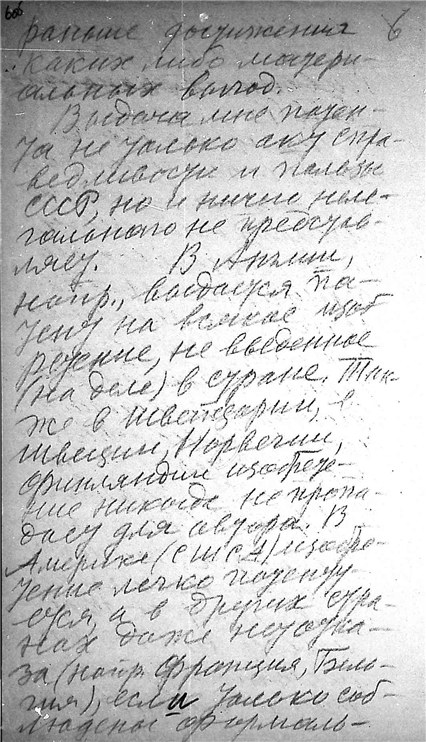 раньше достижения 6
каких либо матери-
альных выгод.
Выдача мне патен-
та не только акт спра-
ведливости и пользы
СССР, но и ничего неле-
гального не представ-
ляет. В Англии,
напр., выдается па-
тент на всякое изоб
ретение, не введенное
(на деле) в стране. Так-
же в Швейцарии, в
Швеции, Норвегии,
Финляндии изобрете-
ние никогда не пропа-
дает для автора. В
Америке (С Ш С А) изобре-
тение легко патенту
ется, а в других стра-
нах даже нет отка-
за (напр. Франция, Бель-
гия), если только соб-
людены формаль-